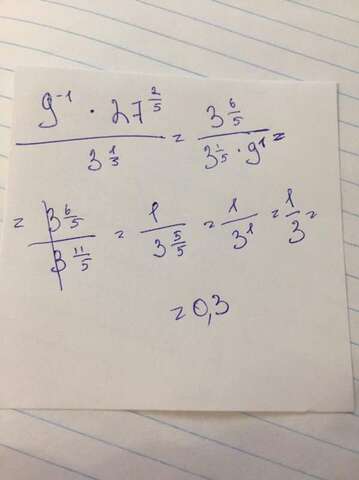 9⁻¹ · 27^(2/5) / 3^(1/3) = 3^(6/5) / (3^(1/5) · 9¹) =
= 3^(6/5) / 3^(11/5) = 1 / 3^(5/5) = 1 / 3¹ = 1/3 =
= 0,3